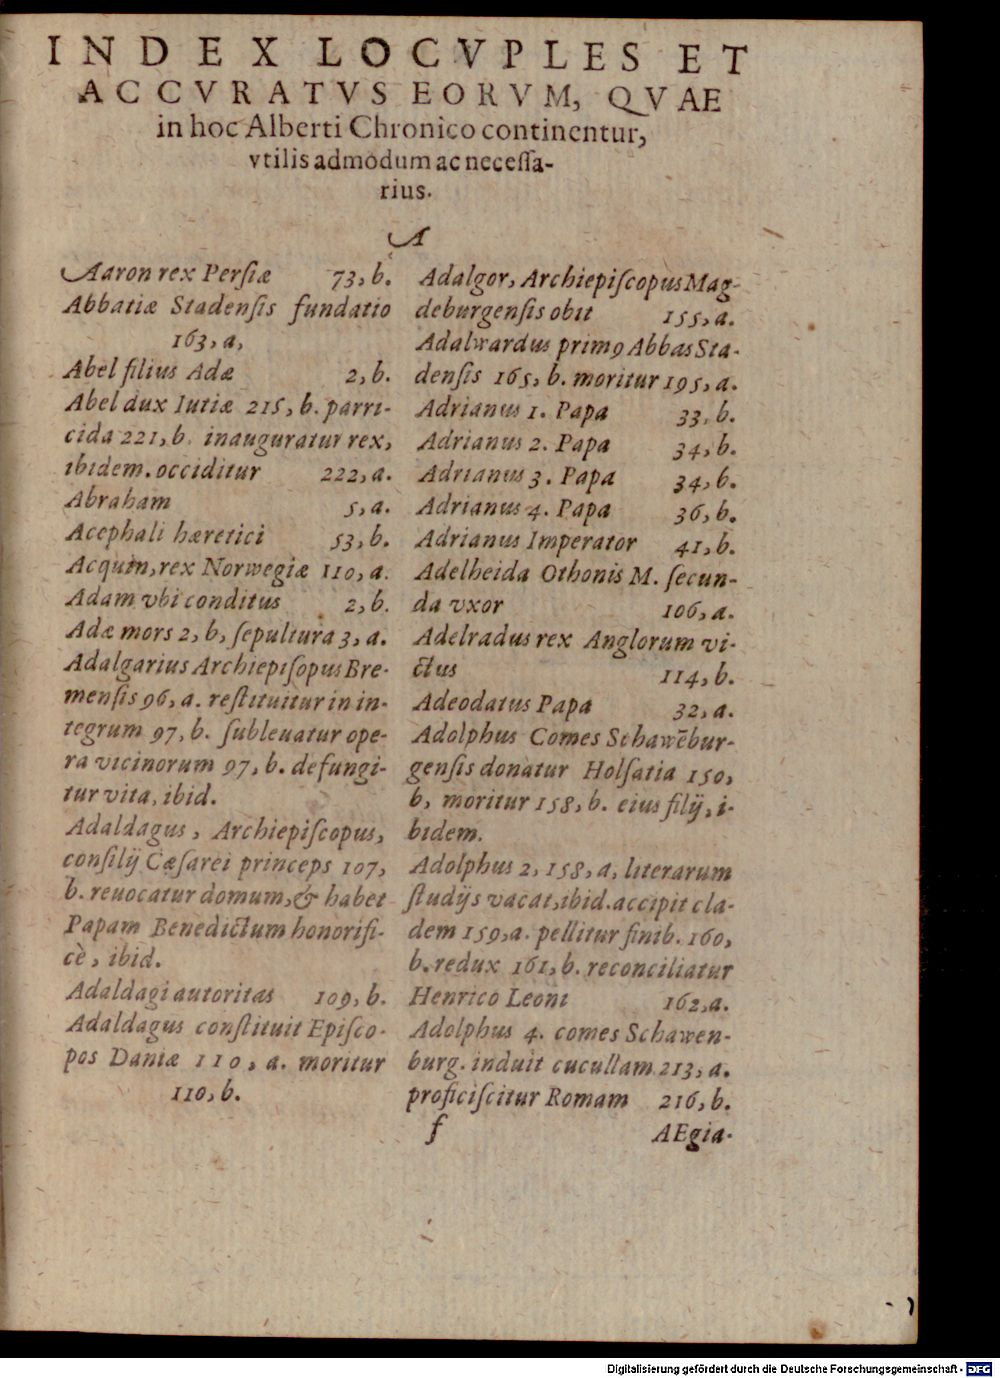 INDEX LOCVPLES ET
ACCVRATVS EORVM, QVAE
in hoc Alberti Chronico continentur,
vtilis admodum ac necessa-
rius.
A
Aaron rex Persiæ 73, b.
Abbatiæ Stadensis fundatio
163, a,
Abel filius Adæ 2, b.
Abel dux Iutiæ 215, b. parri-
cida 221, b. inauguratur rex,
ibidem. occiditur 222, a.
Abraham 5, a.
Acephali hæretici 53, b.
Acquin, rex Norwegiæ 110, a.
Adam vbi conditus 2, b.
Adæ mors 2, b, sepultura 3, a.
Adalgarius Archiepisopus Bre-
mensis 96, a. restituitur in in-
tegrum 97, b. subleuatur ope-
ra vicinorum 97, b. defungi-
tur vita, ibid.
Adaldagus, Archiepiscopus,
consilij Cæsarei princeps 107,
b. reuocatur domum, & habet
Papam Benedictum honorifi-
cè, ibid.
Adaldagi autoritas 109, b.
Adaldagus constituit Episco-
pos Daniæ 110, a. moritur
110, b.
Adalgor, Archiepiscopus Mag-
deburgensis obit 155, a.
Adalwardus primꝰ Abbas Sta-
densis 165, b. moritur 195, a.
Adrianus 1. Papa 33, b.
Adrianus 2. Papa 34, b.
Adrianus 3. Papa 34, b.
Adrianus 4. Papa 36, b.
Adrianus Imperator 41, b.
Adelheida Othonis M. secun-
da vxor 106, a.
Adelradus rex Anglorum vi-
ctus 114, b.
Adeodatus Papa 32, a.
Adolphus Comes Schawēbur-
gensis donatur Holsatia 150,
b, moritur 158, b. eius filij, i-
bidem.
Adolphus 2, 158, a, literarum
studijs vacat, ibid. accipit cla-
dem 159, a. pellitur finib. 160,
b. redux 161, b. reconciliatur
Henrico Leoni 162, a.
Adolphus 4. comes Schawen-
burg. induit cucullam 213, a.
proficiscitur Romam 216, b.
f AEgia-
Digitalisierung gefördert durch die Deutsche Forschungsgemeinschaft - DFG